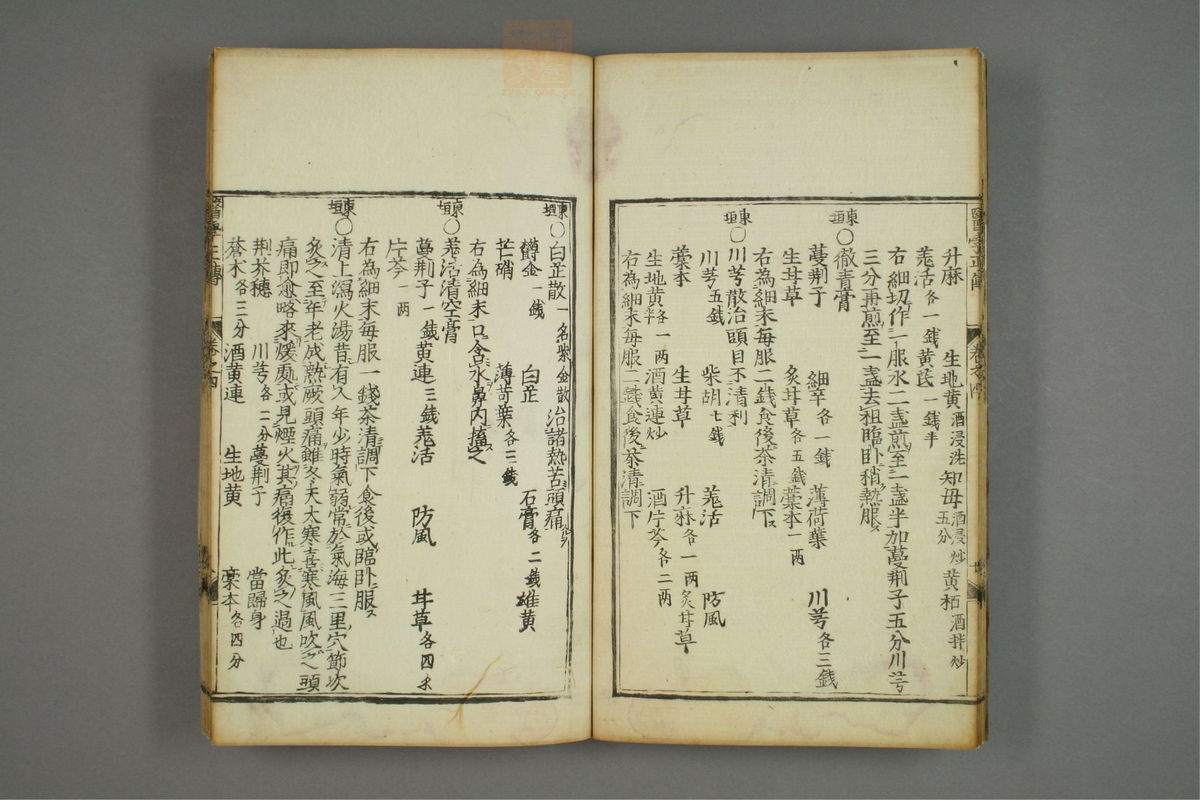 升麻 生地黄酒浸洗 知母酒浸炒五分 黄栢酒拌炒
羗活各一錢 黄芪一錢半
右細切作一服水二盞煎至一盞半加蔓荆子五分川芎
三分再煎至一盞去柤臨卧稍熱服
東垣〇徹青膏
蔓荆子 細辛各一錢 薄荷葉 川芎各三錢
生甘草 炙甘草各五錢 藁本一両
右為細末每服二錢食後茶清調下
東垣〇川芎散治頭目不清利
川芎五錢 柴胡七錢 羗活 防風
藁本 生甘草 升麻各一両 炙甘草
生地黄各一両 酒黄連炒 酒片芩各二両
右為細末每服二錢食後茶清調下
醫學正傳 卷之四
東垣〇白芷散一名紫金散治諸熱苦頭痛
欝金一錢 白芷 石膏各二錢 雄黄
芒硝 薄荷葉各三錢
右為細末口含水鼻内搐之
東垣〇羗活清空膏
蔓荆子一錢 黄連三錢 羗活 防風 甘草各四
片芩一両
右為細末每服一錢茶清調下食後或臨卧服
東垣〇清上瀉火湯昔有人年少時氣弱常於氣海三里穴節次
炙之至年老成熱厥頭痛雖冬天大寒喜寒風風吹之頭
痛即愈略來煖處或見煙火其痛復作此炙之過也
荆芥穗 川芎各二分 蔓荆子 當歸身
蒼术各三分 酒黄連 生地黄 藁本各四分
醫學正傳 卷之四